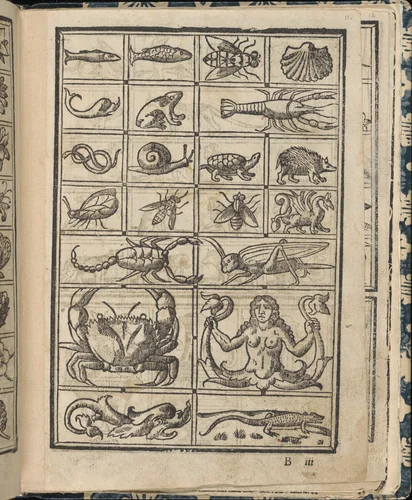 B iii